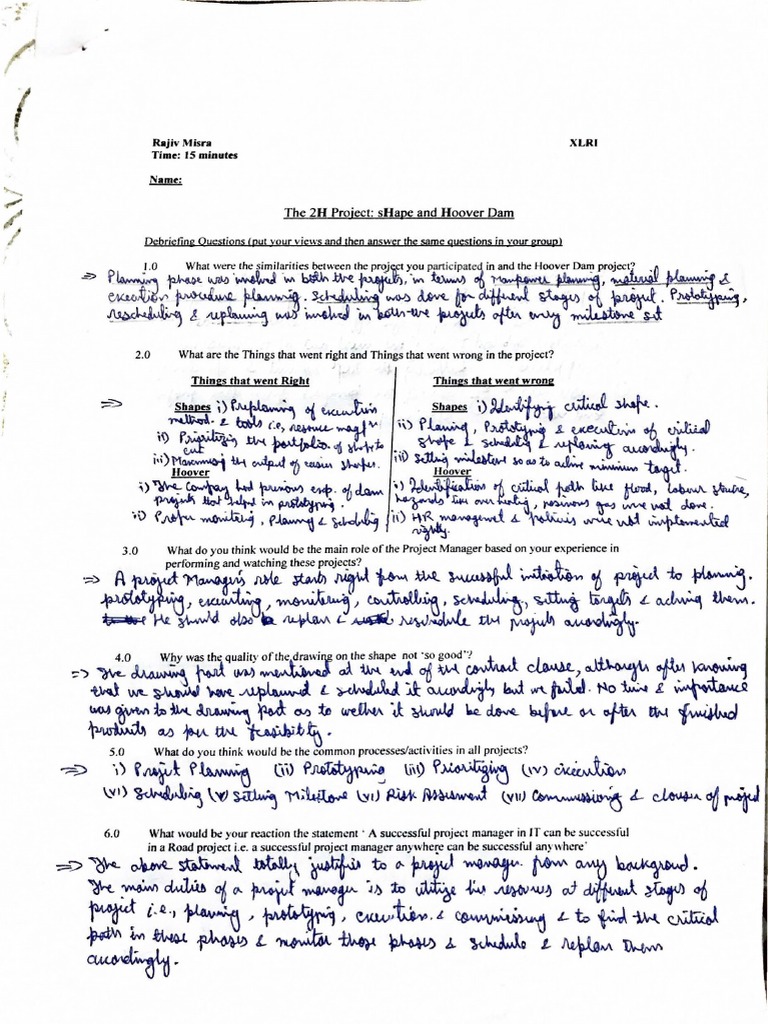 Rajiv Misra XLRI
Time: 15 minutes
Name:
The 2H Project: sHape and Hoover Dam
Debriefing Questions (put your views and then answer the same questions in your group)
1.0 What were the similarities between the project you participated in and the Hoover Dam project?
⇒ Planning phase was involved in both the projects, in terms of manpower planning, material planning &
execution procedure planning. Scheduling was done for different stages of project. Prototyping,
rescheduling & replanning was involved in both the projects after every milestone set
2.0 What are the Things that went right and Things that went wrong in the project?
Things that went Right Things that went wrong
⇒ Shapes i) Preplanning of execution
method & tools i.e, resource
ii) Prioritizing the portfolio of shape to
cut
iii) Maximising the output of easier shapes.
Hoover
i) The Company had previous exp. of dam
projects that helped in prototyping.
ii) Proper monitoring, Planning & scheduling
Shapes i) Identifying critical shape.
ii) Planning, Prototyping & execution of critical
shape & scheduling & replaning accordingly.
iii) Setting milestone so as to achive minimum target.
Hoover
i) Identification of critical path like flood, labour strike,
hazards like over heating, poisinous gas were not done.
ii) HR management & policies were not implemented
rightly.
3.0 What do you think would be the main role of the Project Manager based on your experience in
performing and watching these projects?
⇒ A project Manager's role starts right from the successful initiation of project to planning.
prototyping, executing, monitoring, controlling, scheduling, setting targets & achiving them.
He should also replan & reschedule the projects accordingly.
4.0 Why was the quality of the drawing on the shape not 'so good'?
⇒ The drawing part was mentioned at the end of the contract clause, although after knowing
that we should have replanned & scheduled it accordingly but we failed. No time & importance
was given to the drawing part as to wether it should be done before or after the finished
products as per the feasibility.
5.0 What do you think would be the common processes/activities in all projects?
⇒ i) Projet Planning (ii) Prototyping (iii) Prioritizing (iv) execution
(vi) Scheduling (v) Setting Milestone (vi) Risk Assesment (vii) Commissioning & closure of project
6.0 What would be your reaction the statement ' A successful project manager in IT can be successful
in a Road project i.e. a successful project manager anywhere can be successful anywhere'
⇒ The above statement totally justifies to a project manager from any background.
The main duties of a project manager is to utilize his resources at different stages of
project i.e., planning, prototyping, execution & commissioning & to find the critical
path in these phases & monitor those phases & schedule & replan them
accordingly.